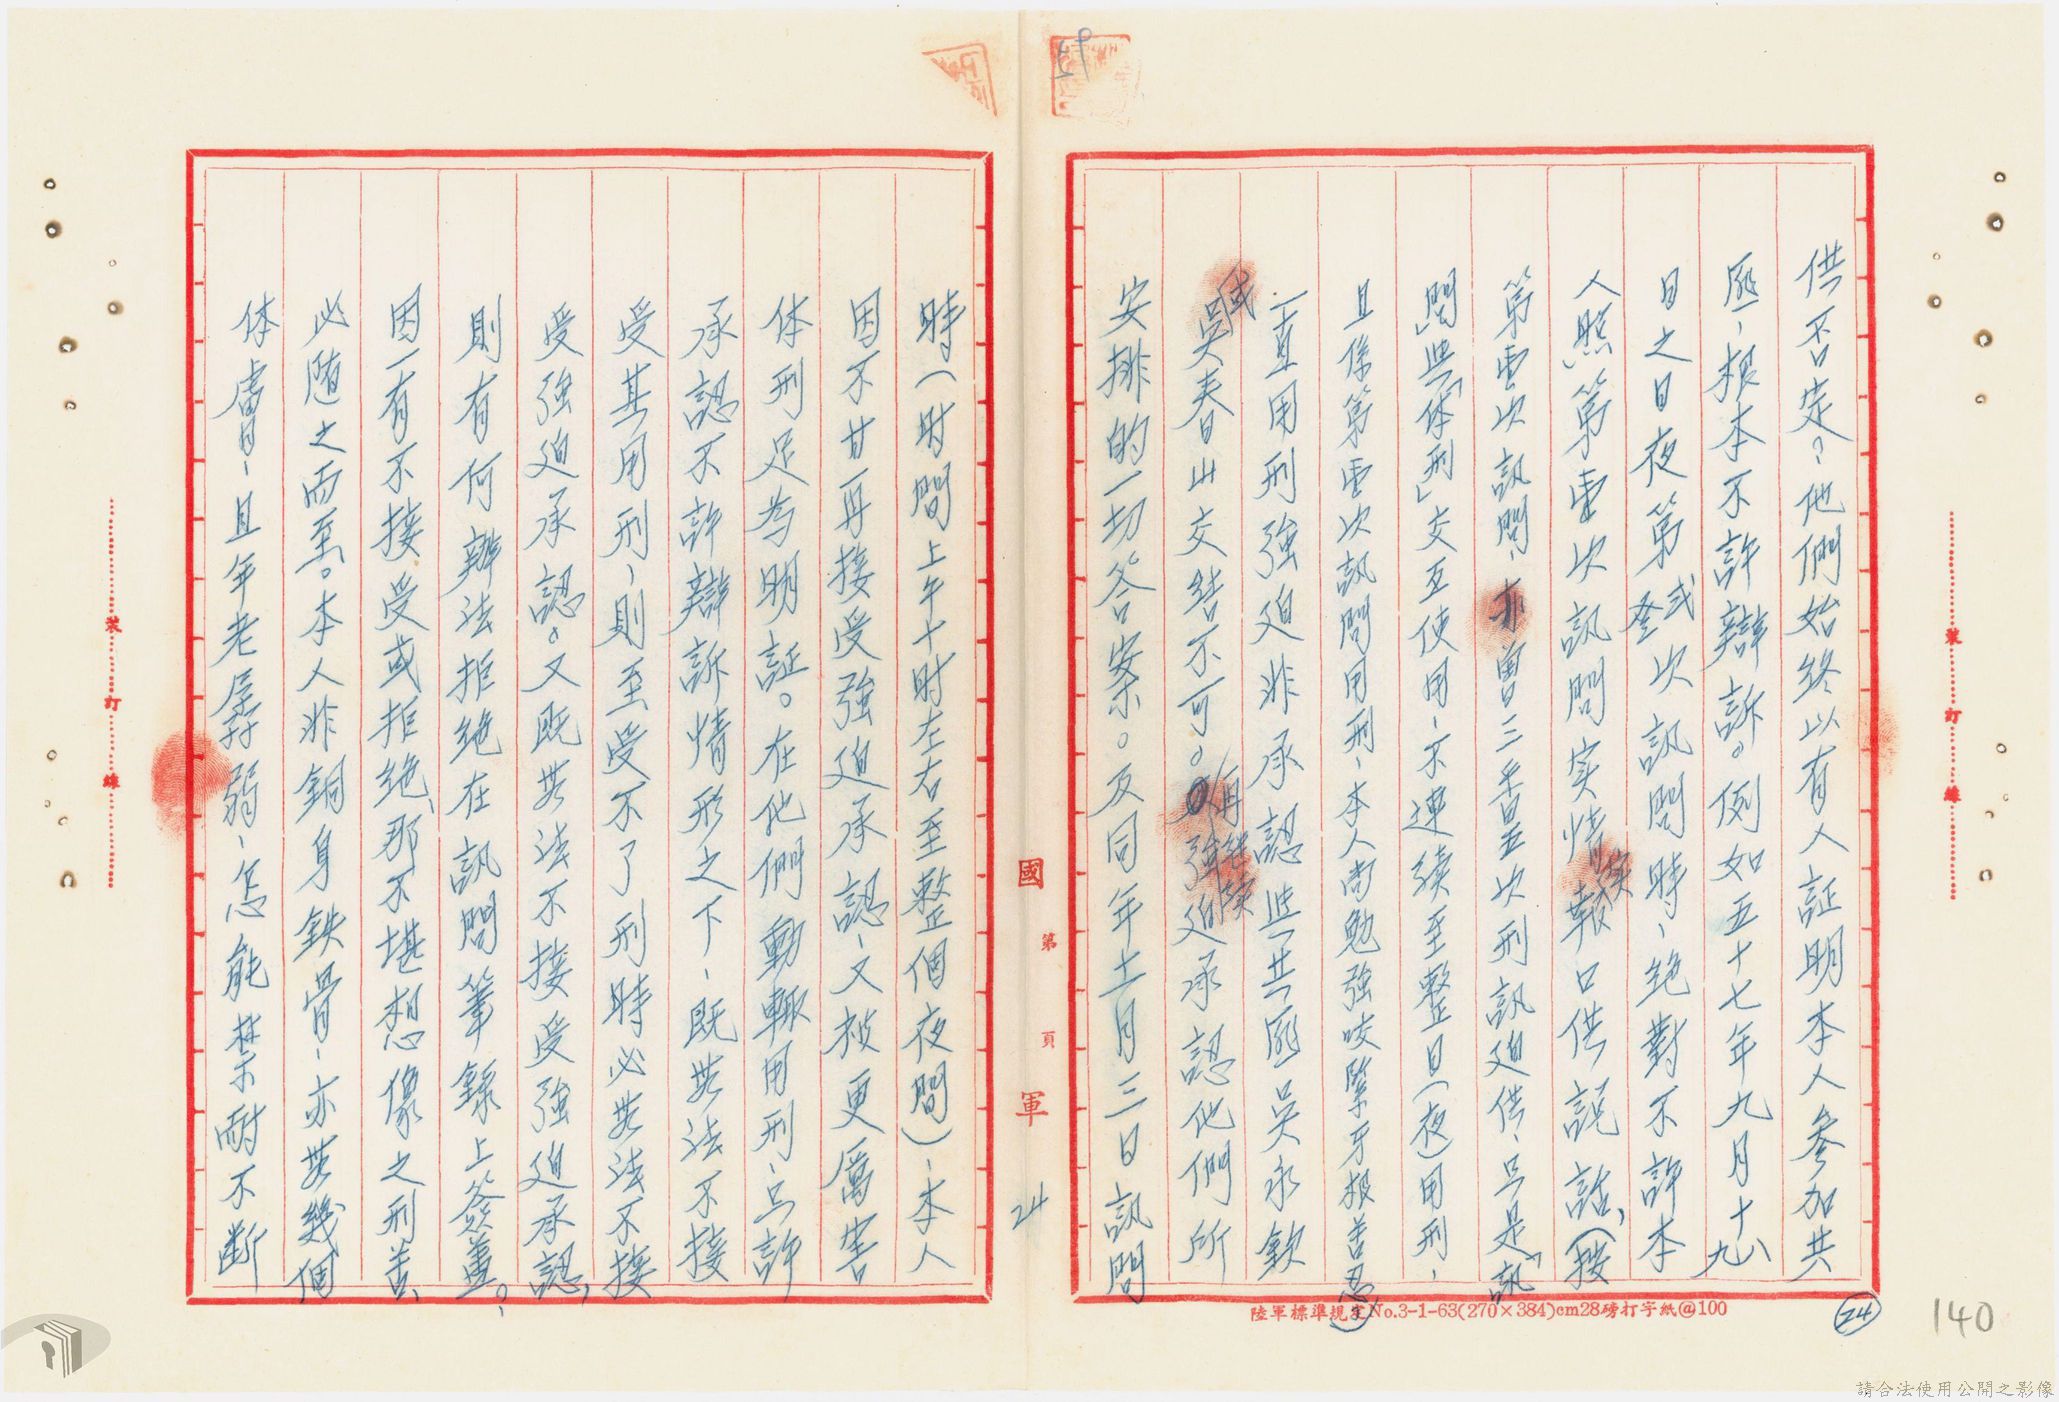 供否定？他們始終以有人証明本人參加共
匪、根本不許辯訴。例如五十七年九月十八九
日之日夜第弍次訊問時、絕對不許本
人「照第壹次訊問実情実報口供説話、（按
第壹次訊問、亦曾三番五次刑訊迫供、只是「訊
問」與「体刑」交互使用、不連续至整日（夜）用刑、
且係第壹次訊問用刑、本人尚勉強咬緊牙根苦忍）
一直用刑強迫非承認與共匪吳永欽
或吳春山交結不可。再継续強迫承認他們所
安排的一切答案。及同年十一月三日訊問
時（时間上午十时左右至整個夜間）、本人
因不甘再接受強迫承認、又被更厲害
体刑足為明証。在他們動輒用刑、只許
承認不許辯訴情形之下、既無法不接
受其用刑、則至受不了刑時必無法不接
受強迫承認。又既無法不接受強迫承認，
則有何辦法拒絕在訊問筆錄上簽蓋？
因一有不接受或拒绝、那不堪想像之刑苦、
必隨之而至。本人非銅身鉄骨、亦無幾個
体膚、且年老孱弱、怎能禁耐不斷
國 第 頁 軍
24
裝 訂 線
裝 訂 線
陸軍標準規定No.3-1-63(270×384)cm28磅打字紙@100
24
140
請合法使用公開之影像